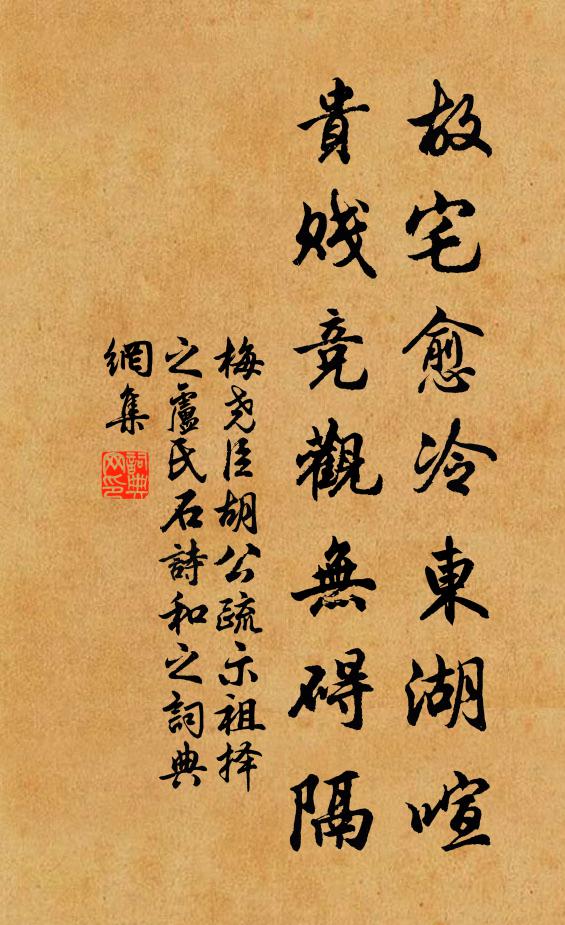 故宅愈冷東湖喧
貴賤竞觀無碍隔
梅尧臣胡公疏示祖择
之盧氏石詩和之詞典
網集
詞典網印